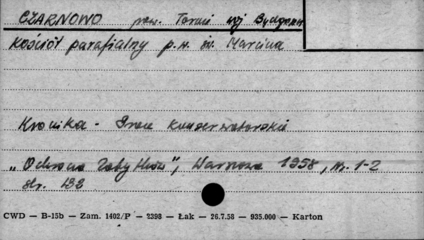 CZARNOWO pow. Toruń woj Bydgoszcz
Kościół parafialny p.w. św. Marcina
Kronika - Prace konserwatorskie
"Ochrona Zabytków", Warszawa 1958, nr. 1-2
str. 132
CWD — B-15b — Zam. 1402/P — 2398 — Łak — 26.7.58 — 935.000 — Karton